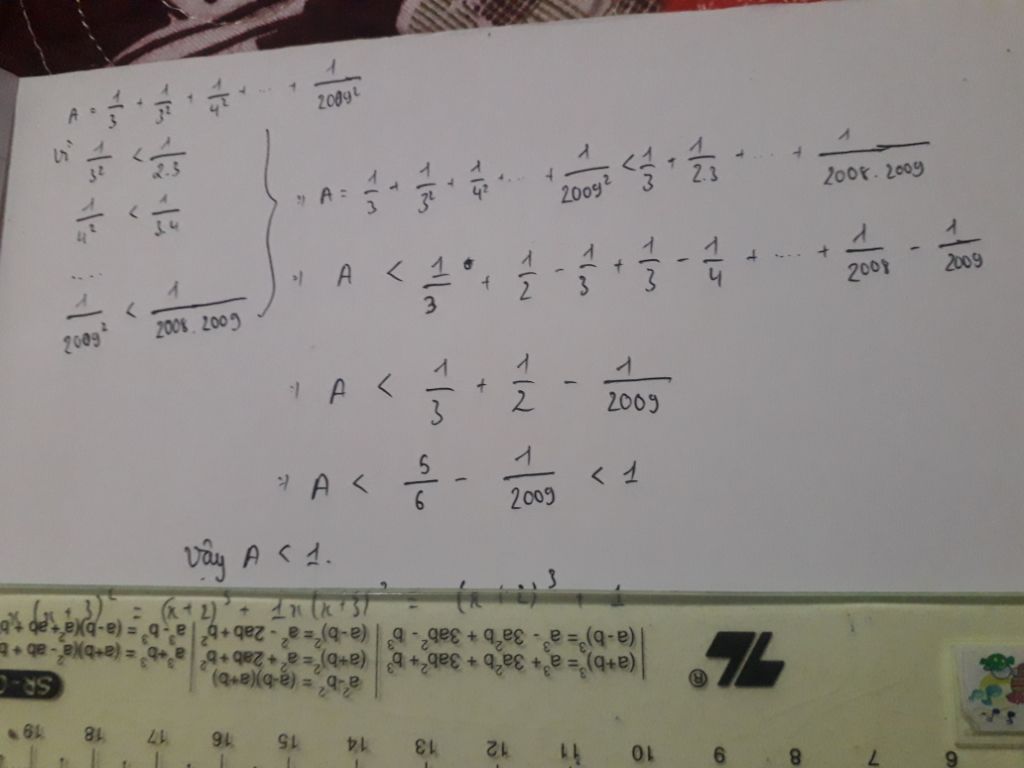 A = 1/3 + 1/3² + 1/4² + ... + 1/2009²
Vì 1/3² < 1/2.3
1/4² < 1/3.4
....
1/2009² < 1/2008.2009
⇒ A = 1/3 + 1/3² + 1/4² + ... + 1/2009² < 1/3 + 1/2.3 + ... + 1/2008.2009
⇒ A < 1/3 + 1/2 - 1/3 + 1/3 - 1/4 + ... + 1/2008 - 1/2009
⇒ A < 1/3 + 1/2 - 1/2009
⇒ A < 5/6 - 1/2009 < 1
Vậy A < 1.
a²-b² = (a-b)(a+b)
(a+b)² = a² + 2ab + b²
(a-b)² = a² - 2ab + b²
(a+b)³ = a³ + 3a²b + 3ab² + b³
(a-b)³ = a³ - 3a²b + 3ab² - b³
a³+b³ = (a+b)(a² - ab + b
a³-b³ = (a-b)(a² + ab + b
TL ®
SR-
6 7 8 9 10 11 12 13 14 15 16 17 18 19